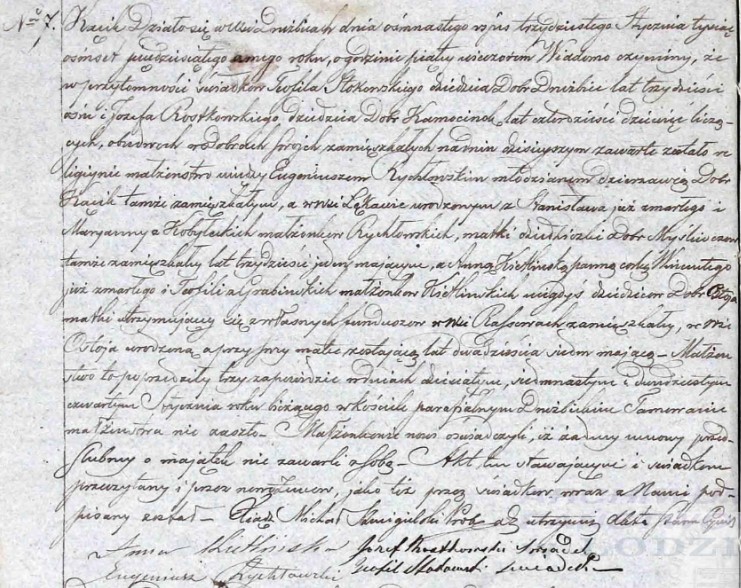 Nro 7. Kacik Działo się w Wsi Drużbicach dnia ośmnastego trzydziestego Stycznia tysiąc
ośmset roku, o godzinie piąty wieczorem Wiadomo czyniemy, że
w przytomności świadków Teofila Stokowskiego dziedzica Dobr Drużbic lat trzydzieści
ośm i Jozefa Rostkowskiego, dziedzica Dobr Kamocinek, lat czterdzieści dziewięć liczą-
cych, obudwoch w dobrach swojch zamięszkałych na dniu dzisiejszym zawarte zostało re
ligijnie małżeństwo między Eugeniuszem Rychłowskim młodzianem dzierzawcą Dobr
Kacik tamże zamięszkałym, a w Wsi Łękawie urodzonym z Stanisława już zmarłego i
Maryanny z Kobyłeckich małżonków Rychłowskich, matki dziedziczki dobr
tamże zamięszkały lat trzydzieści jeden mającym, a Anną Kiełlińską panną corką Wincentego
już zmarłego i Teofili z Grabińskich małżonków Kiełlińskich niegdyś dziedzicow Dobr Ostoja
matki utrzymującej się z własnych funduszow w Wsi zamięszkały, we Wsi
Ostoja urodzoną a przy swy matce zostającą lat dwadzieścia siedm mającą – Małżeń
stwo to poprzedziły trzy zapowiedzie w dniach dziesiątym, siedmnastym i dwudziestym
czwartym Stycznia roku bieżącego w kościele parafialnym Drużbickim Tamowanie
małżeństwa nie zaszło – Małżonkowie nowi oświadczyli, iż żadny umowy przed-
ślubny o majątek nie zawarli z sobą – Akt ten stawającym i świadkom
przeczytany i przez nowżeńcow, jako też przez świadkow, wraz z Nami pod-
pisany został – Xiądz Michał Szmigulski Prob.
Anna Kiełlińska Jozef Rostkowski świadek
Eugeniusz Rychłowski Teofil Stokowski świadek